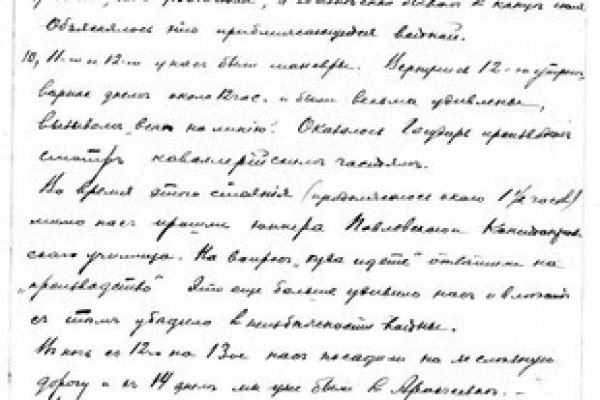 Объяснялось это приближающейся войной.
10, 11-го и 12-го у нас были маневры. Вернулись 12-го утром,
вернее днем около 12 час. и были весьма удивлены,
вызовом "всех на линию". Оказалось Государь производил
смотр кавалерийским частям.
Во время этого стояния (продолжалось около 1½ часов)
мимо нас прошли юнкера Павловского
ского училища. На вопрос "куда идете" ответили на
"производство" Это еще больше удивило нас и
с тем убедило в неизбежности войны.
В ночь с 12-го на 13-ое нас посадили на железную
дорогу и 14 днем мы уже были в